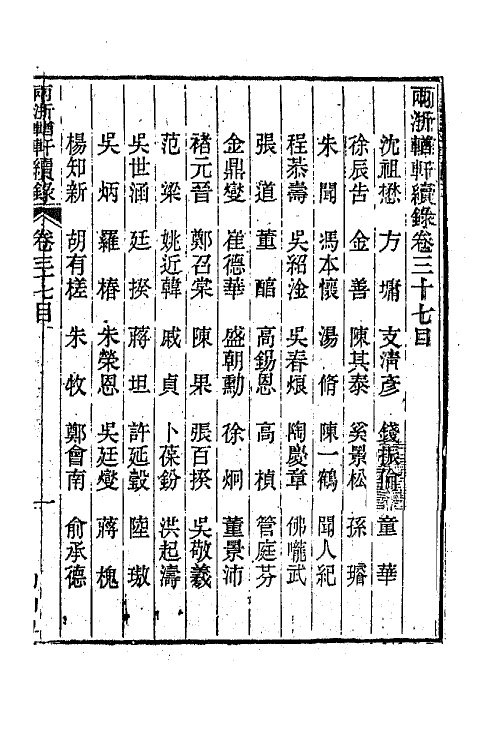 兩浙輶軒續錄卷三十七目
沈祖懋 方墉 支清彦 錢振倫 童華
徐辰告 金善 陳其泰 奚景松 孫瓚
朱聞 馮本懷 湯脩 陳一鶴 聞人紀
程恭壽 吳紹淦 吳春烺 陶慶章 佛嚨武
張道 董醅 高錫恩 高楨 管庭芬
金鼎燮 崔德華 盛朝勳 徐炯 董景沛
褚元晉 鄭召棠 陳果 張百揆 吳敬羲
范梁 姚近韓 戚貞 卜葆鈖 洪起濤
吳世涵 廷揆 蔣坦 許延瑴 陸璈
吳炳 羅椿 朱榮恩 吳廷燮 蔣槐
楊知新 胡有槎 朱牧 鄭會南 俞承德
兩浙輶軒續錄 卷三十七目 一